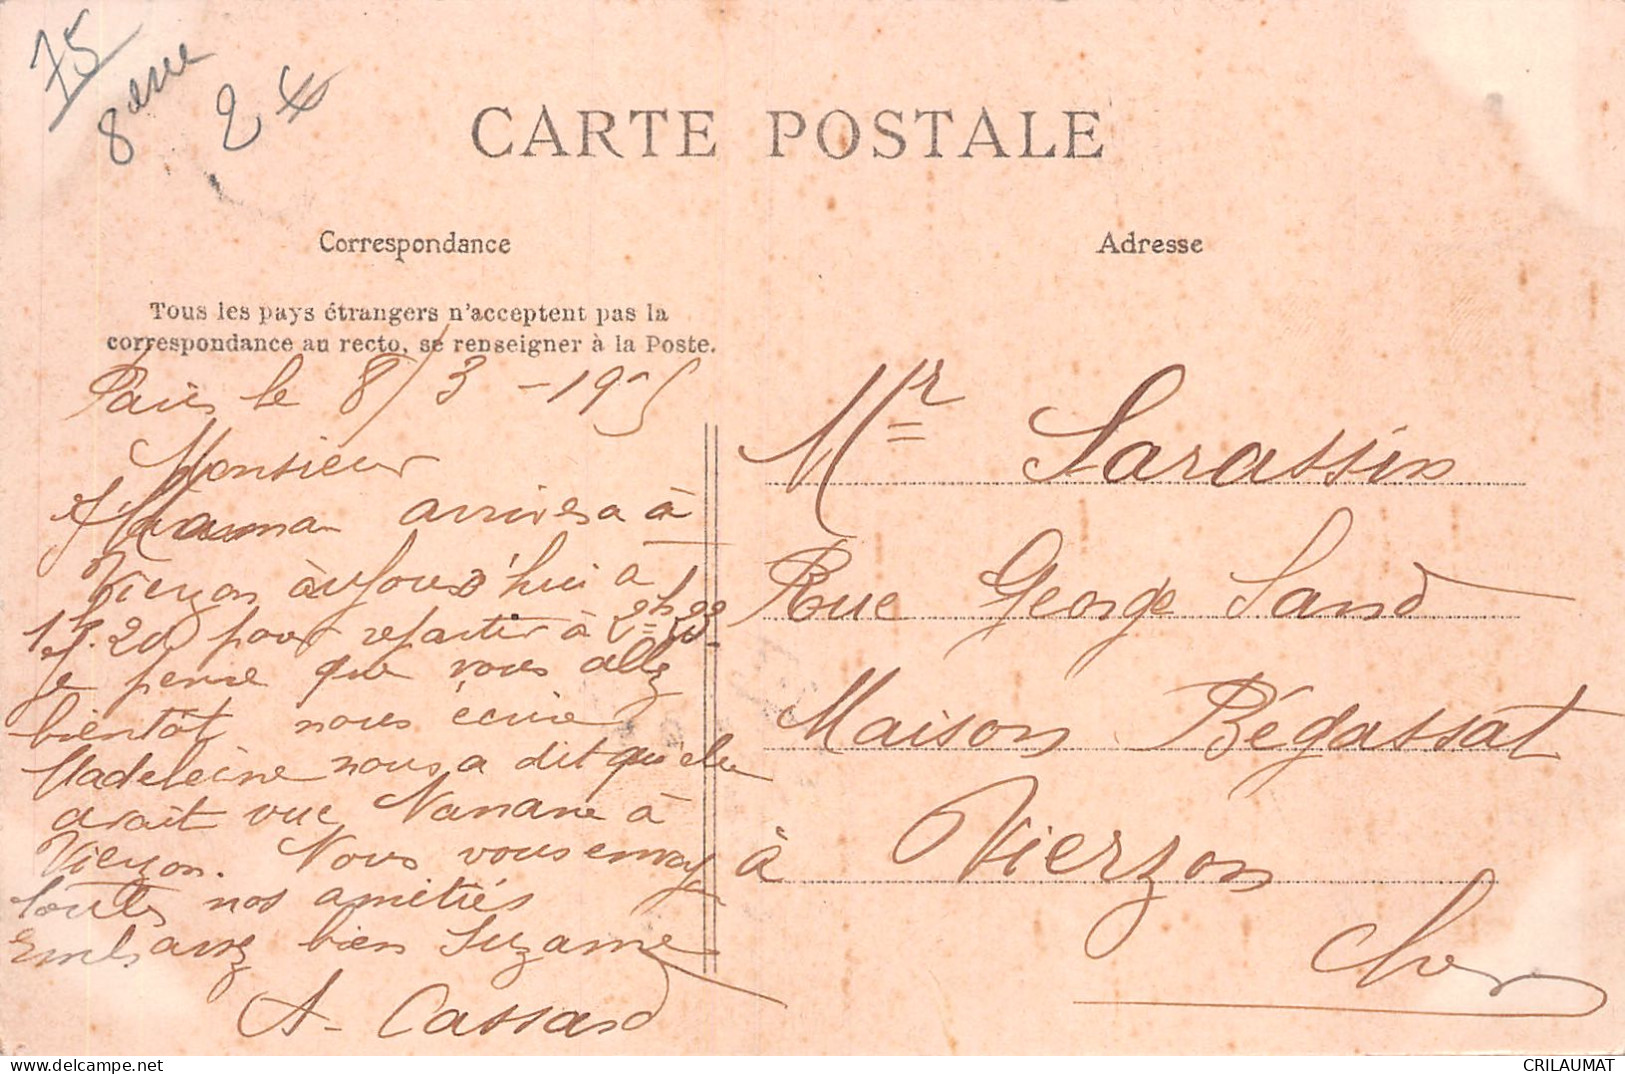 75
8ème
2
CARTE POSTALE
Correspondance
Adresse
Tous les pays étrangers n'acceptent pas la
correspondance au recto, se renseigner à la Poste.
Paris le 8/3 - 19
Monsieur
Maman arrivera à
Vierzon aujourd'hui à
1h.20 pour repartir à 2h
Je pense que vous allez
bientôt nous écrire
Madeleine nous a dit qu'elle
avait vue Nanane à
Vierzon. Nous vous envoy
toutes nos amitiés
Embrassez bien Suzanne
A. Cassard
Mr Sarassin
Rue George Sand
Maison Bégassat
à Vierzon
Cher
delcampe.net
CRILAUMAT